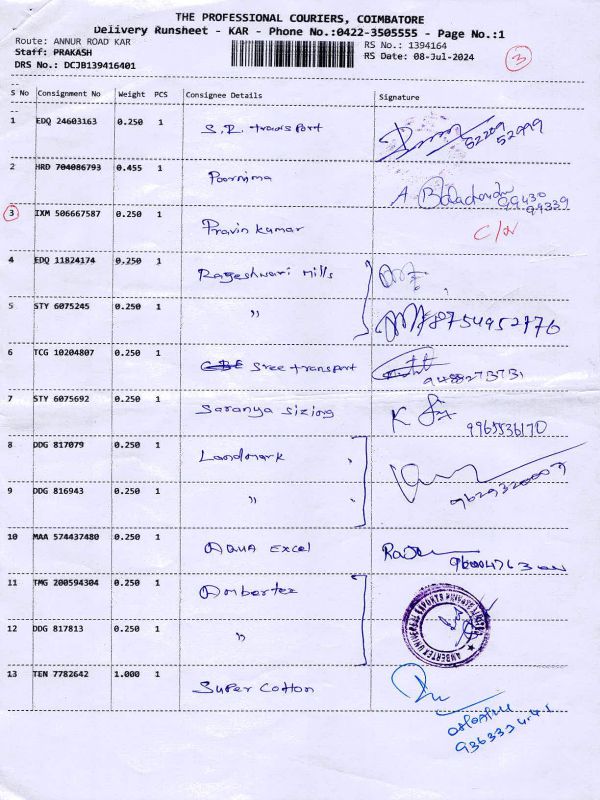 THE PROFESSIONAL COURIERS, COIMBATORE
Delivery Runsheet - KAR - Phone No.:0422-3505555 - Page No.:1
Route: ANNUR ROAD KAR
Staff: PRAKASH
DRS No.: DCJB139416401
RS No.: 1394164
RS Date: 08-Jul-2024
3
S No Consignment No Weight PCS Consignee Details Signature
1 EDQ 24603163 0.250 1 S.R. transport 52209
52999
2 HRD 704086793 0.455 1 Poornima A 99430
99339
3 IXM 506667587 0.250 1 Pravin kumar C/N
4 EDQ 11824174 0.250 1 Rageshwari Mills
5 STY 6075245 0.250 1 " 8754952776
6 TCG 10204807 0.250 1 Sree transport
7 STY 6075692 0.250 1 Saranya sizing K
9965536170
8 DDG 817079 0.250 1 Landmark
9 DDG 816943 0.250 1 " 9629320007
10 MAA 574437480 0.250 1 Aqua Excel
11 TMG 200594304 0.250 1 Ambertex
AMBERTEX UNIVERSAL EXPORTS PRIVATE LIMITED
12 DDG 817813 0.250 1 "
13 TEN 7782642 1.000 1 Super Cotton